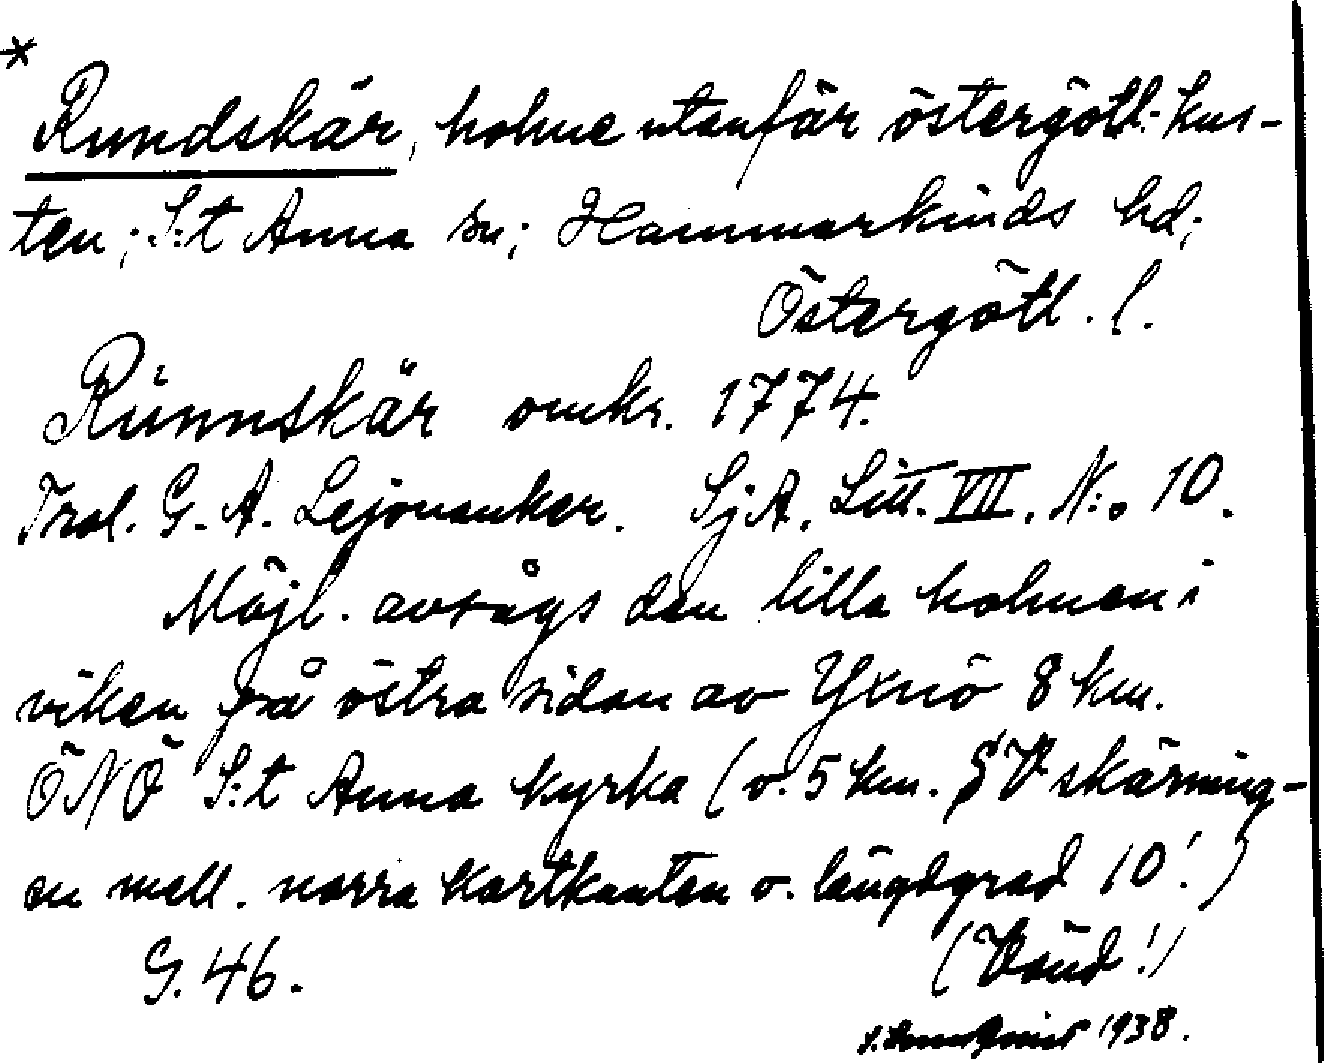 *
Rundskär, holme utanför östergötl. kus-
ten; S:t Anna sn; Hammarkinds hd;
Östergötl. l.
Rünnskär omkr. 1774.
Trol. G. A. Lejonanker. SjA. Litt. VII. N:o 10.
Möjl. avsågs den lilla holmen i
viken på östra sidan av Yxnö 8 km.
ÖNÖ S:t Anna kyrka (o. 5 km. SV skärning-
en mell. norra kartkanten o. längdgrad 10'.)
G. 46.
(Vänd!)
1938.